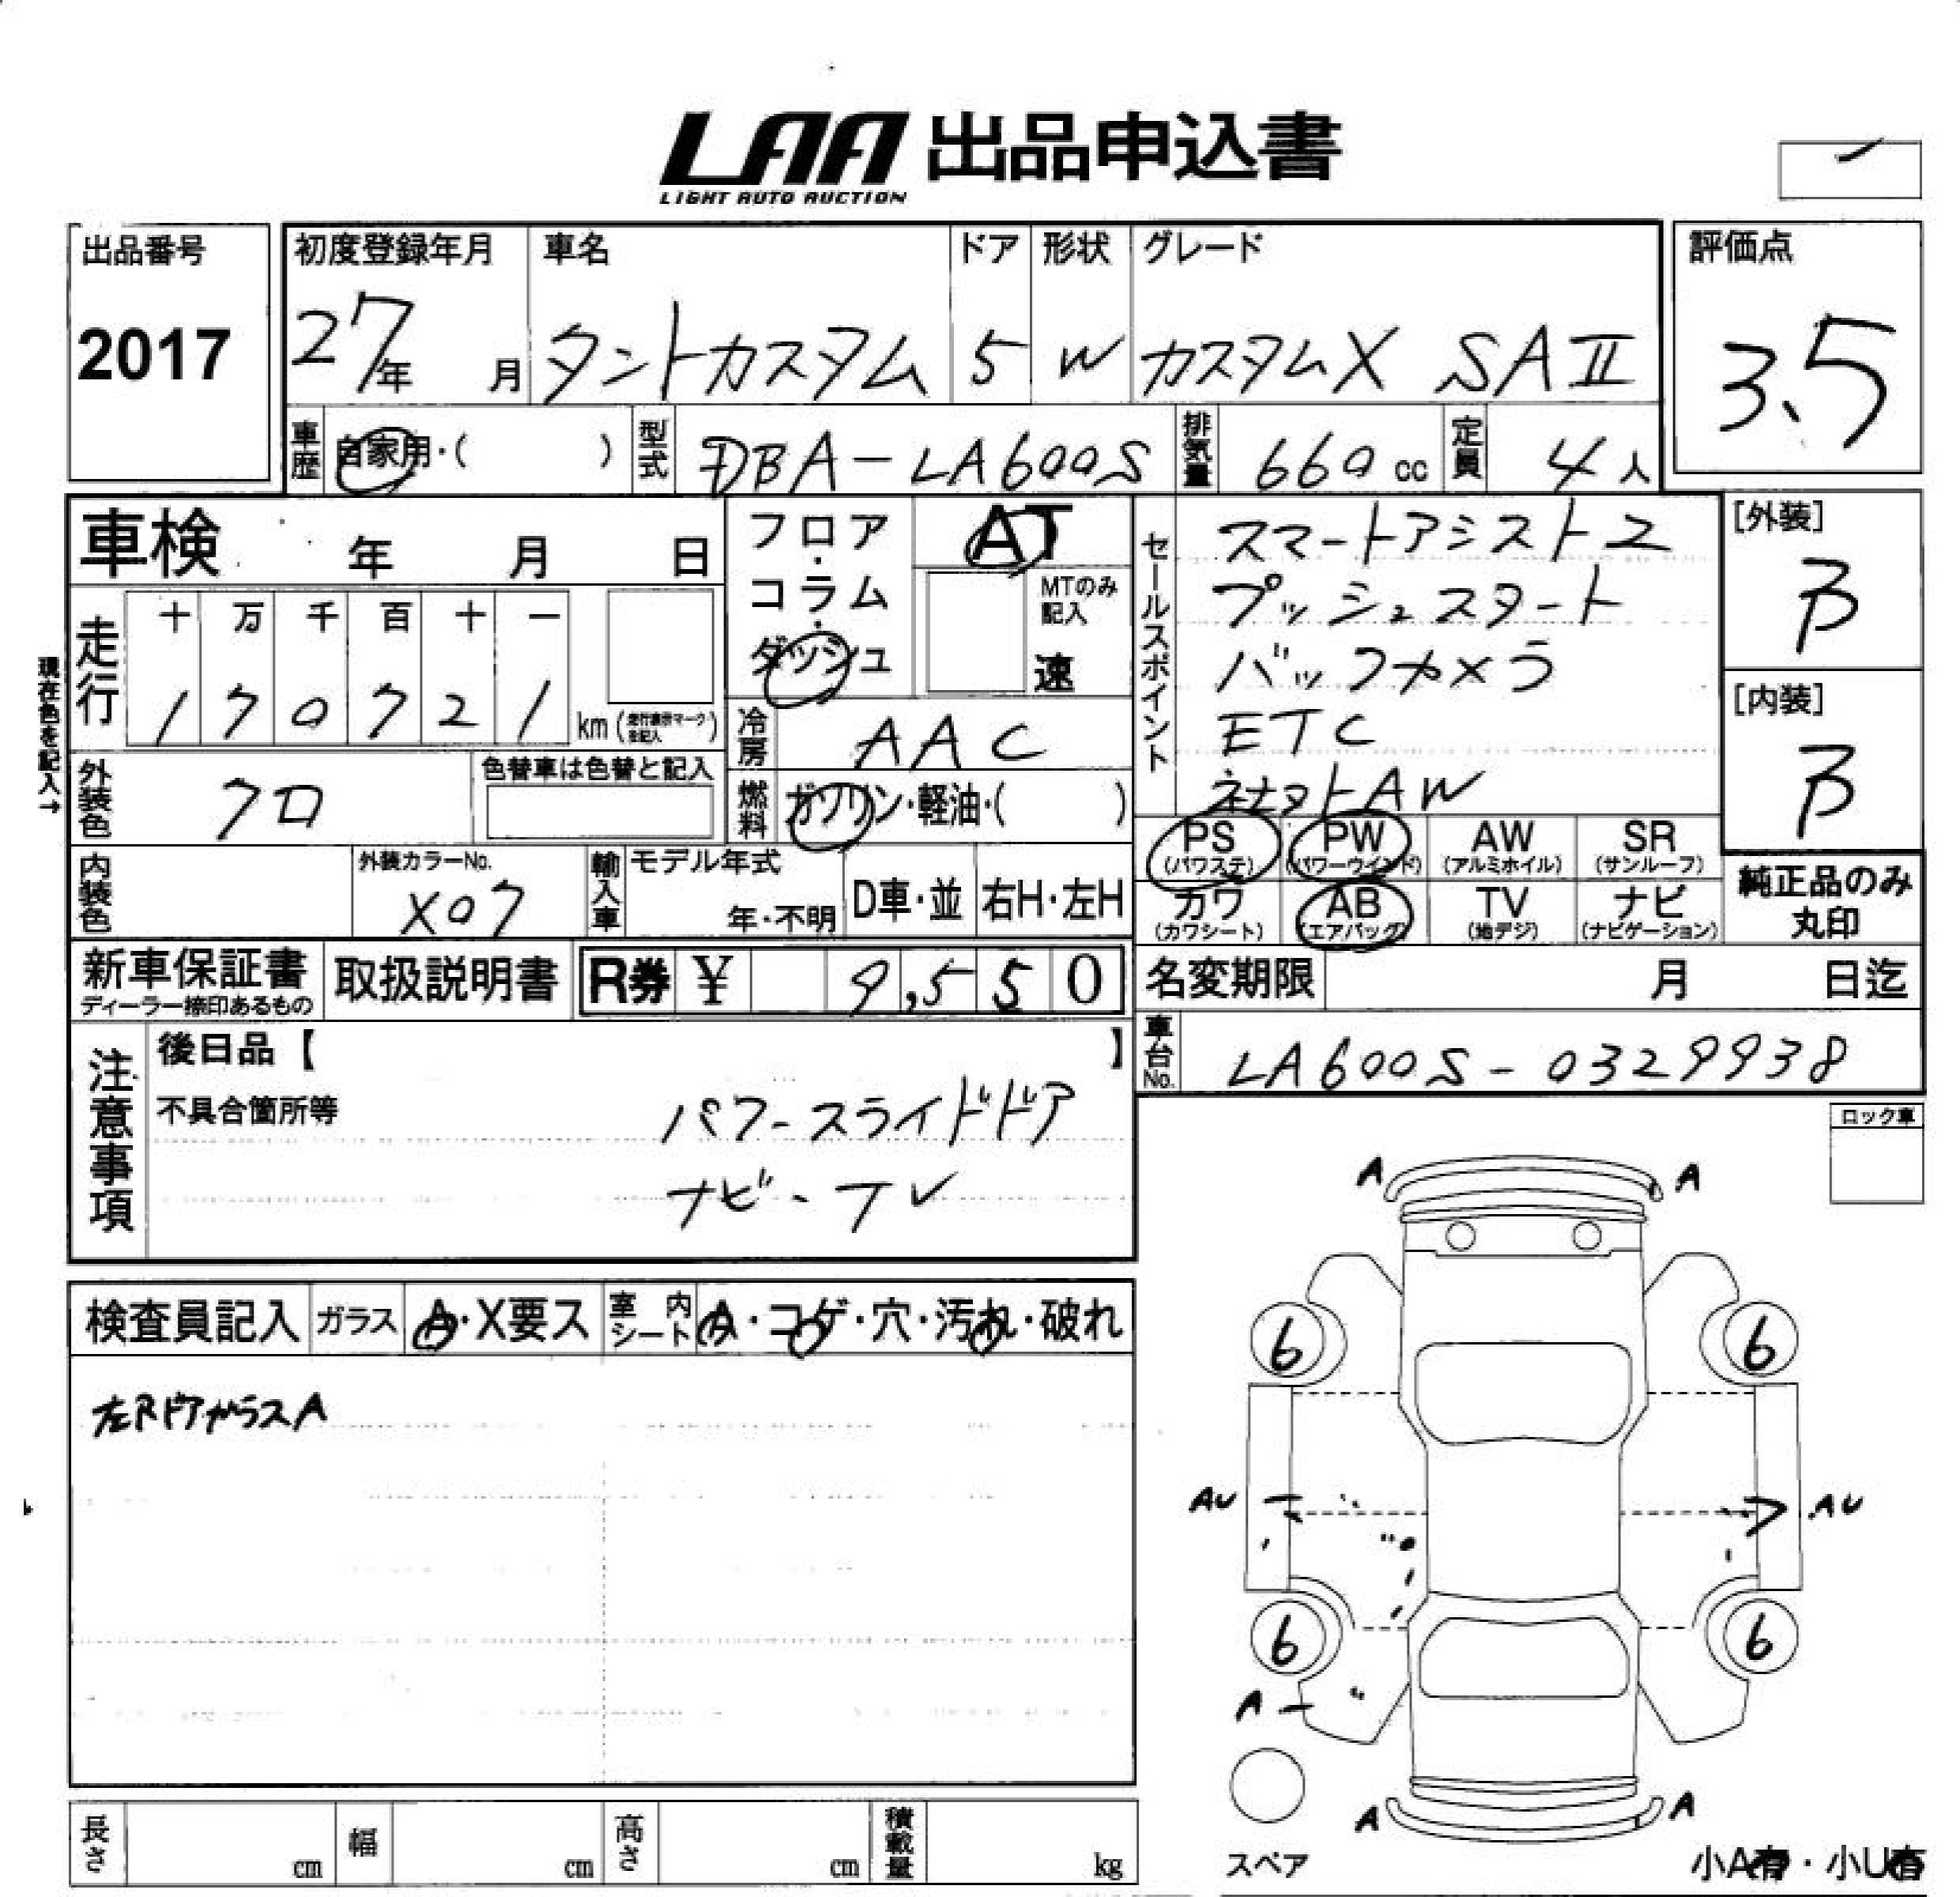 LAA 出品申込書
LIGHT AUTO AUCTION
出品番号
2017
初度登録年月 車名 ドア 形状 グレード
27年 月 タントカスタム 5 W カスタムX SAⅡ
評価点
3.5
車歴 自家用・( ) 型式 DBA-LA600S 排気量 660 cc 定員 4人
車検 年 月 日
フロア・コラム・ダッシュ
AT
MTのみ記入
速
走行
十 万 千 百 十 一
1 7 0 7 2 1 km
現在色を記入→
冷房 AAC
外装色 クロ
色替車は色替と記入
燃料 ガソリン・軽油・( )
セールスポイント
スマートアシスト2
プッシュスタート
バックカメラ
ETC
社外AW
[外装]
B
[内装]
B
PS (パワステ) PW (パワーウインド) AW (アルミホイル) SR (サンルーフ)
カワ (カワシート) AB (エアバック) TV (地デジ) ナビ (ナビゲーション)
純正品のみ
丸印
内装色
外装カラーNo.
X07
輸入車 モデル年式
年・不明 D車・並 右H・左H
新車保証書
ディーラー捺印あるもの
取扱説明書 R券 ¥ 9,550
名変期限 月 日迄
車台No. LA600S-0329938
注意事項
後日品【 】
不具合箇所等
パワースライドドア
ナビ・TV
ロック車
検査員記入 ガラス A・X要ス 室内シート A・コゲ・穴・汚れ・破れ
左RドアガラスA
A A
6 6
AU AU
6 6
A
A A
スペア
小A有・小U有
長さ cm 幅 cm 高さ cm 積載量 kg